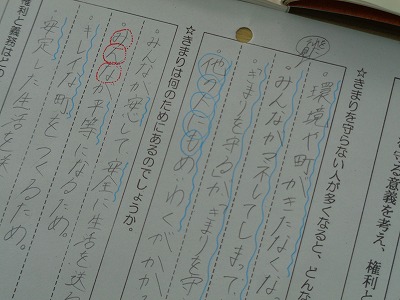 る意義を考え、権利と
☆きまりを守らない人が多くなると、どんな
・環境や町がきたなくな
・みんながマネしてしまって、
きまりを守る人がきまりを守
他の人にもめいわくがかか
☆きまりは何のためにあるのでしょうか。
・みんなが安心して安全に生活を送
・みんなが平等になるため。
・キレイな町をつくるため。
・安定した生活を送
権利と義務はどの